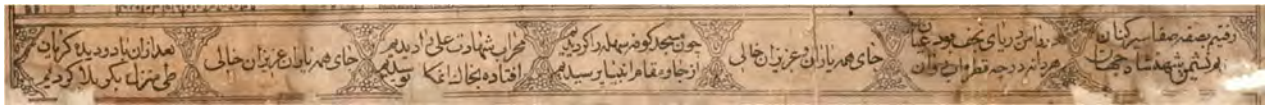 رفتیم بصفه صفا سیر کنان
در دامن دریای نجف بود عیان
هر دانه در چه قطره آب روان
جای همه یاران و عزیزان خالی
چون مسجد کوفه سهله را گردیدیم
از جا و مقام انبیا پرسیدیم
محراب شهادت علی را دیدیم
افتاده بخاک
جای همه یاران عزیزان خالی
بعد ازان با دو دیده گریان
طی منزل بکربلا کردیم